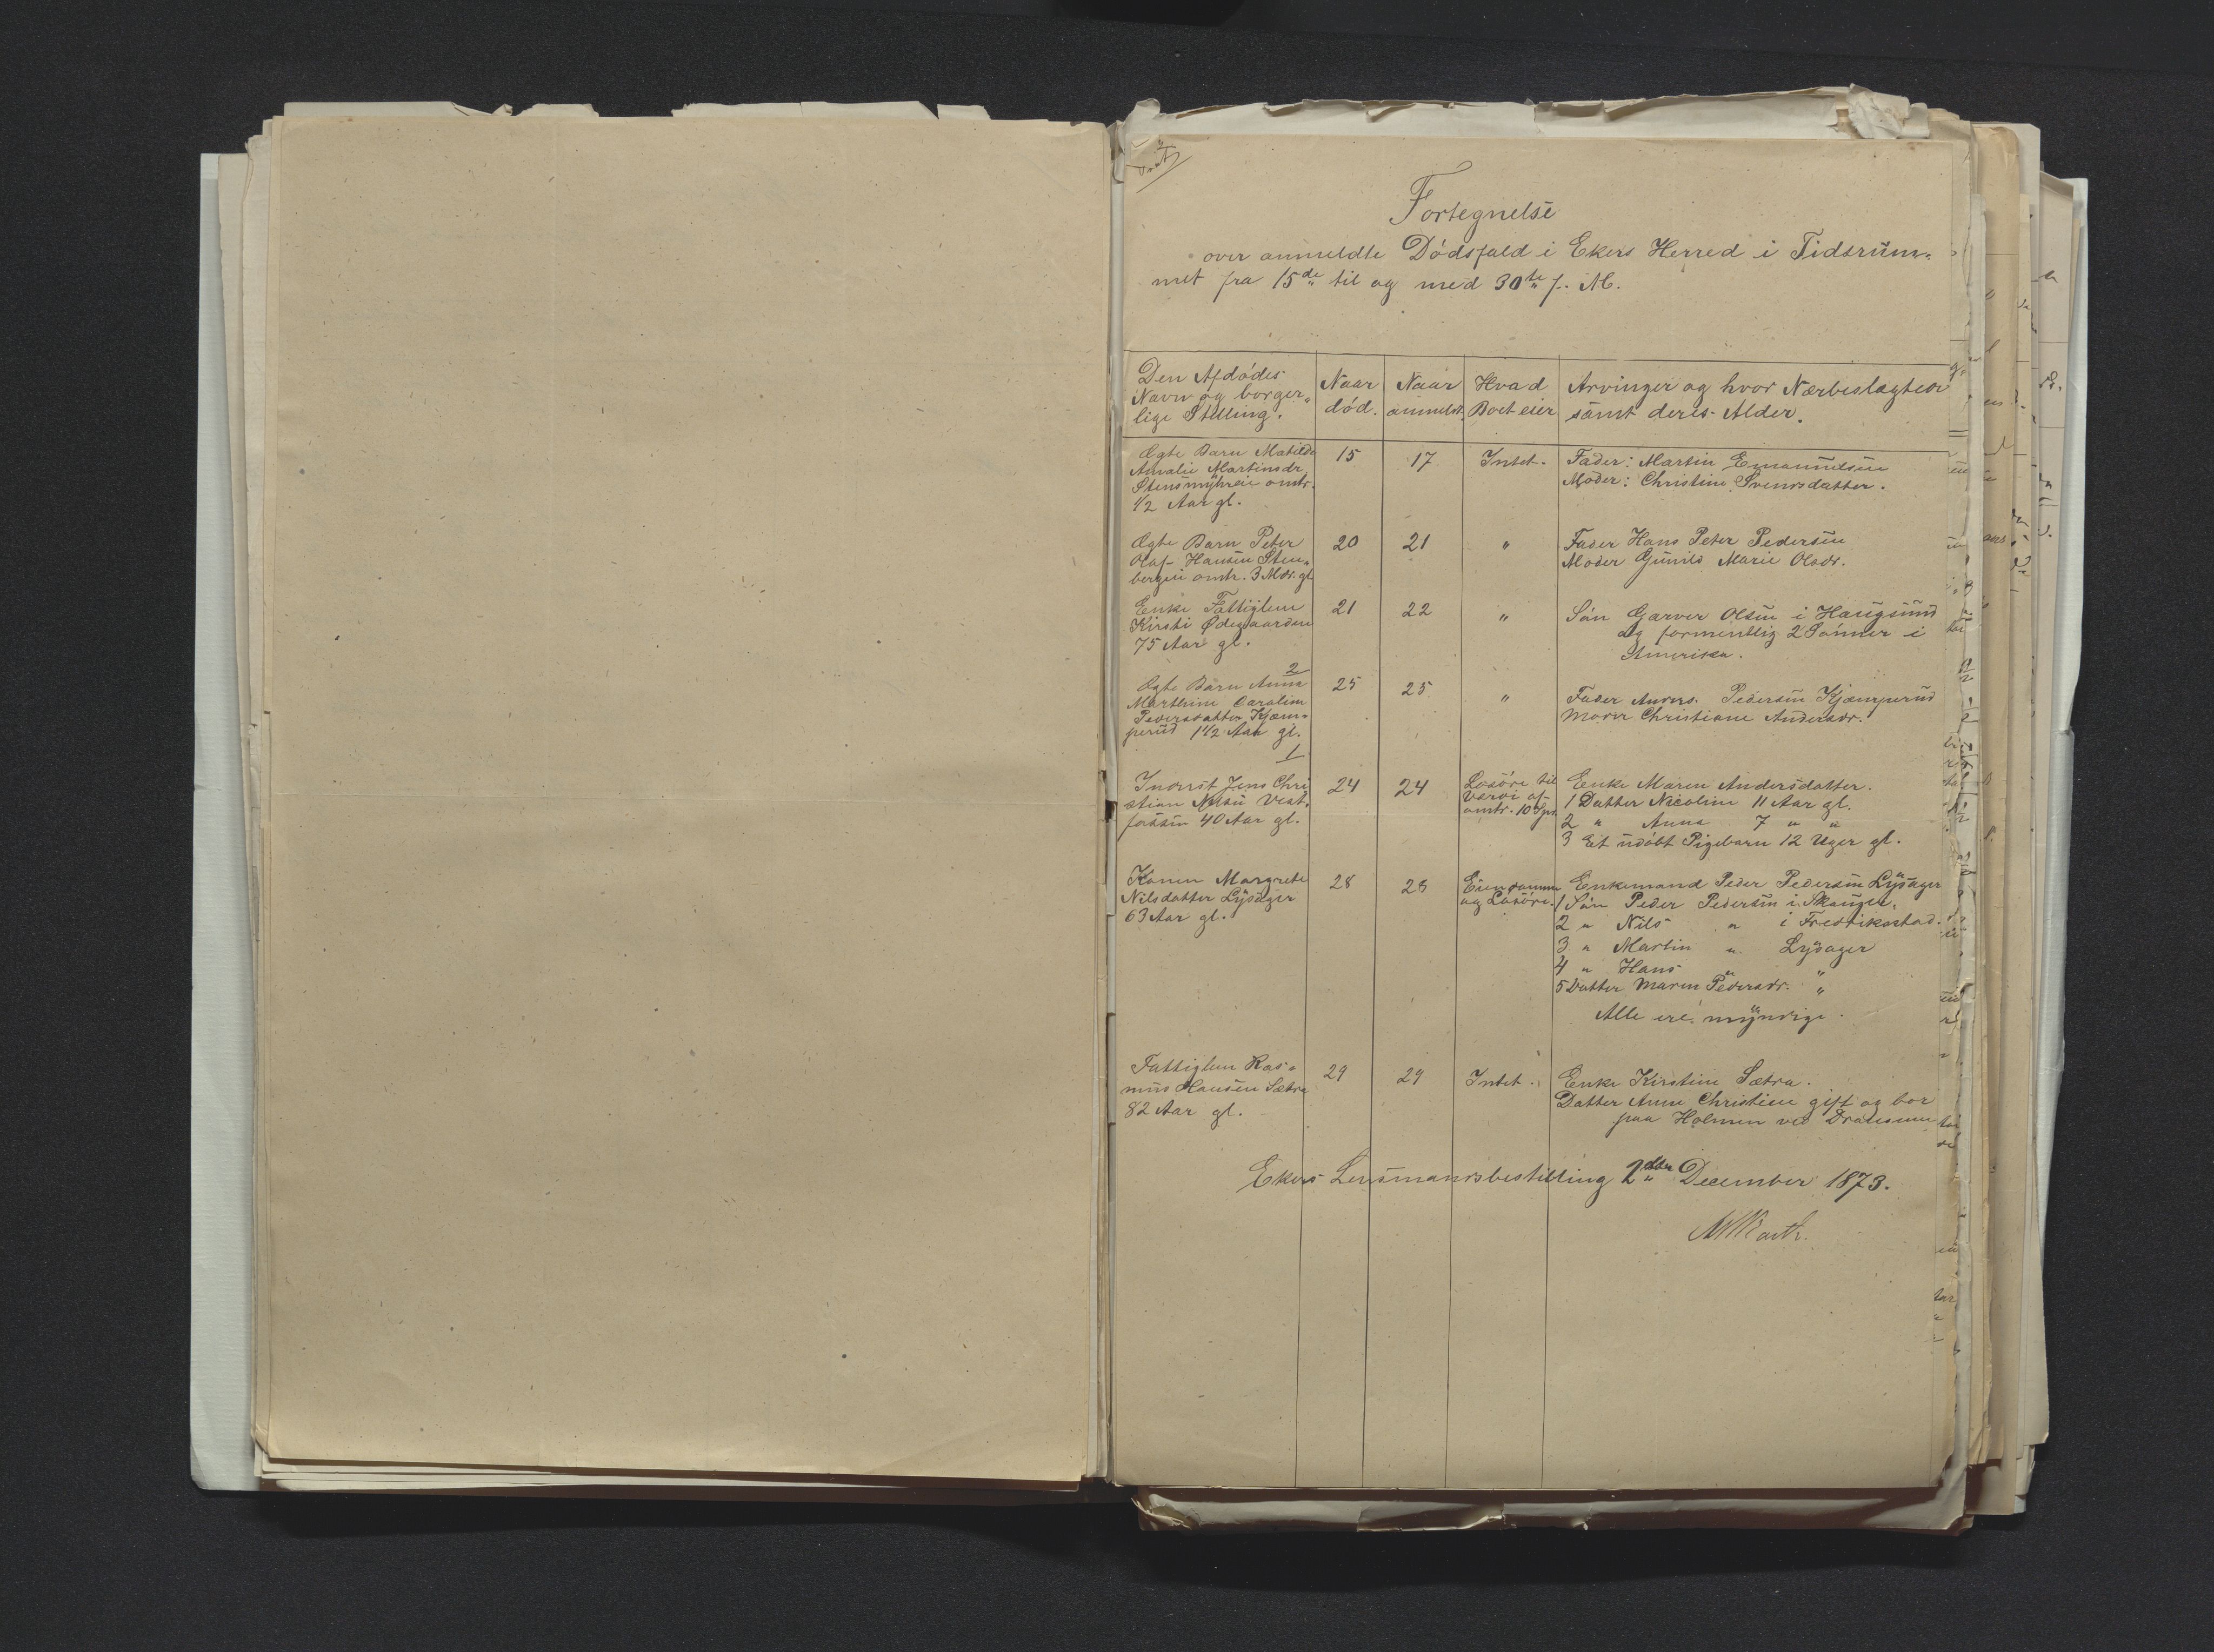 Fortegnelse
over anmeldte Dödsfald i Ekers Herred i Tidsrum-
met fra 15de til og med 30te f. M.
Den Afdödes
Navn og borger-
lige Stilling.
Naar
död.
Naar
anmeldt.
Hvad
Boet eier
Arvinger og hvor Nærbeslægtede
samt deres Alder.
Ægte Barn Matilde
Amalie Martinsdr
Stensmyhreie omtr.
1/2 Aar gl.
15
17
Intet.
Fader: Martin Emanuelsen
Moder: Christine Svensdatter.
Ægte Barn Peter
Olaf Hansen Sten-
bergeie omtr. 3 Mdr. gl
20
21
"
Fader Hans Peter Pedersen
Moder Gunild Marie Olsdr.
Enke Fattiglem
Kirsti Ødegaarden
75 Aar gl.
21
22
"
Sön Garver Olsen i Haugsund
og formentlig 2 Sönner i
Amerika.
2
Ægte Barn Anna
Marthine Caroline
Pedersdatter Kjæm-
perud 1 1/2 Aar gl.
25
25
"
Fader Anders Pedersen Kjæmperud
Moder Christiane Andersdr.
1
Inderst Jens Chri
stian Nilsen Vest-
fossen 40 Aar gl.
24
24
Lösöre til
Værdi af
omtr. 10 Spd.
Enke Maren Andersdatter.
1 Datter Nicoline 11 Aar gl.
2 " Anna 7 " "
3 Et udöbt Pigebarn 12 Uger gl.
Konen Margrethe
Nilsdatter Lysager
63 Aar gl.
28
28
Eiendomme
og Lösöre.
Enkemand Peder Pedersen Lysager
1 Sön Peder Pedersen i Skouger.
2 " Nils " i Fredrikstad.
3 " Martin " Lysager
4 " Hans " "
5 Datter Maren Pedersdr. "
Alle ere myndige.
Fattiglem Ras-
mus Hansen Sætra
82 Aar gl.
29
29
Intet.
Enke Kirstine Sætra.
Datter Anne Christine gift og bor
paa Holmen ved Drammen
Ekers Lensmandsbestilling 2den December 1873.